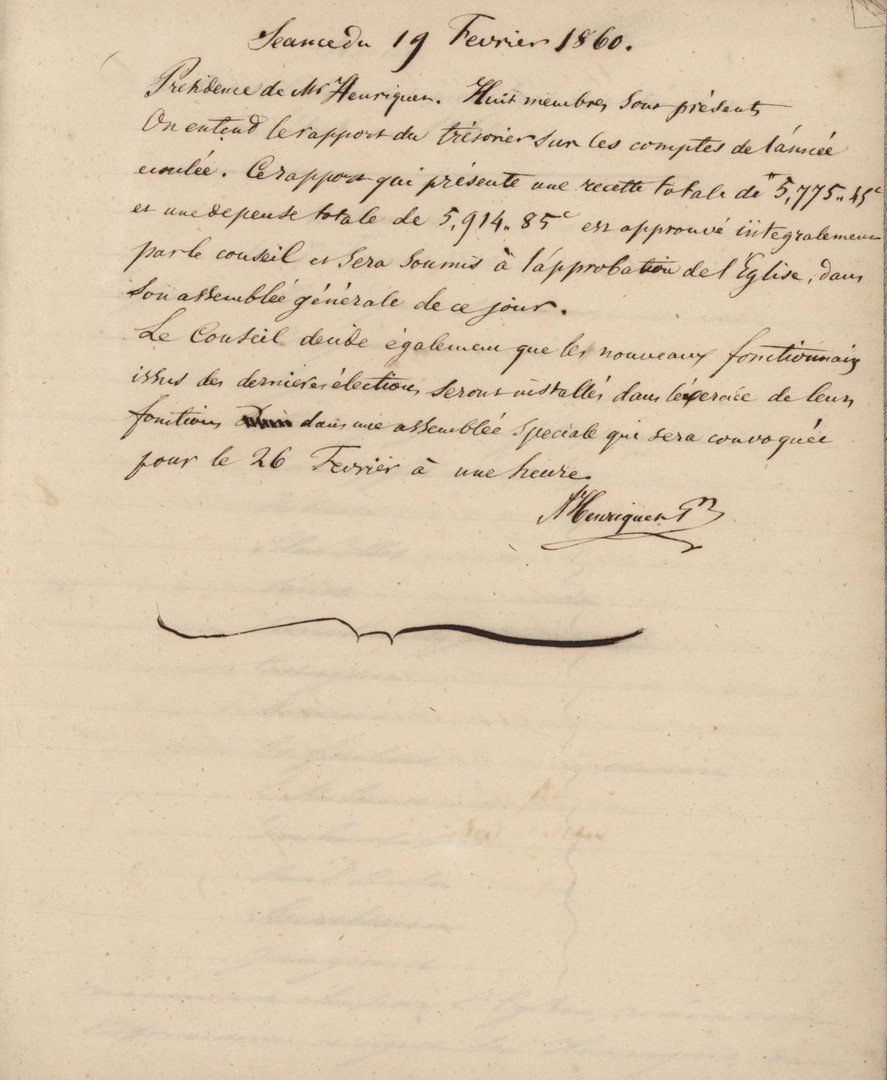 Seance du 19 Fevrier 1860.
Présidence de Mr Henriquez. Huit membres sont présents
On entend le rapport du trésorier sur les comptes de l'année
écoulée. Ce rapport qui présente une recette totale de 5,775.. 45c
et une depense totale de 5,914.. 85c est approuvé intégralement
par le conseil et sera soumis à l'approbation de l'Eglise, dans
son assemblée générale de ce jour.
Le Conseil decide également que les nouveaux fonctionnaires
issus des dernieres élections seront installés dans l'éxercice de leurs
fonctions dans une assemblée speciale qui sera convoquée
pour le 26 Fevrier à une heure.
Henriquez